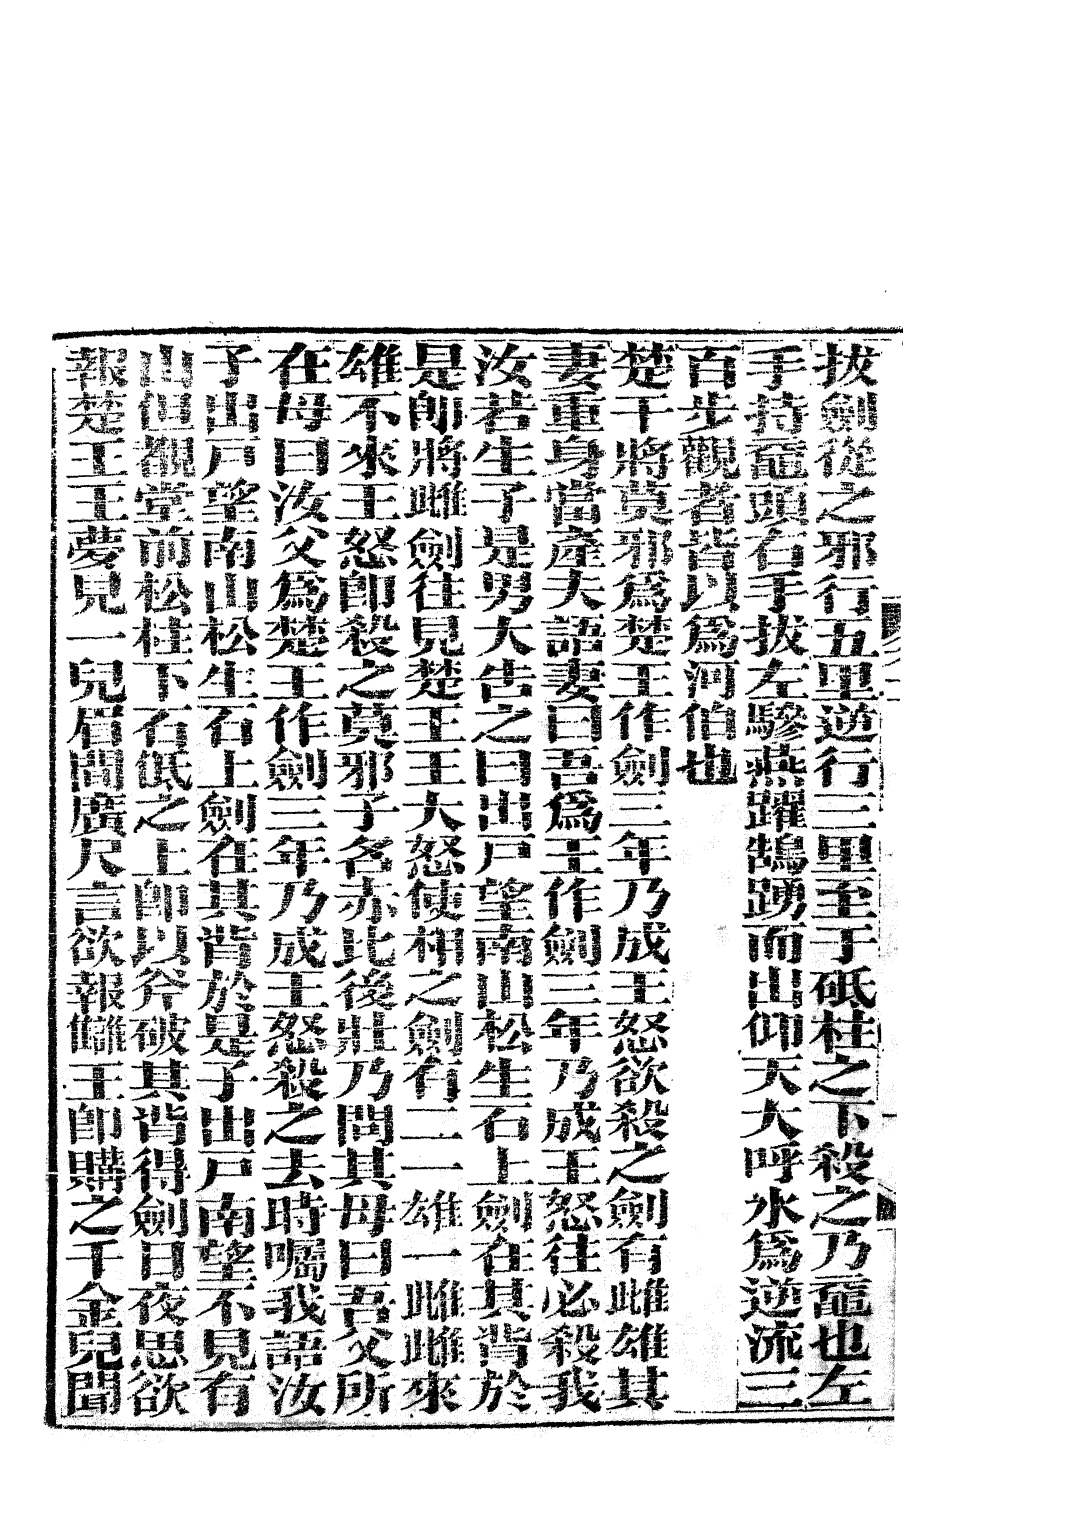 拔劍從之邪行五里逆行三里至于砥柱之下殺之乃黿也左
手持黿頭右手拔左驂燕躍鵠踴而出仰天大呼水爲逆流三
百步觀者皆以爲河伯也
楚干將莫邪爲楚王作劍三年乃成王怒欲殺之劍有雌雄其
妻重身當產夫語妻曰吾爲王作劍三年乃成王怒往必殺我
汝若生子是男大告之曰出戸望南山松生石上劍在其背於
是卽將雌劍往見楚王王大怒使相之劍有二一雄一雌雌來
雄不來王怒卽殺之莫邪子名赤比後壯乃問其母曰吾父所
在母曰汝父爲楚王作劍三年乃成王怒殺之去時囑我語汝
子出戸望南山松生石上劍在其背於是子出戸南望不見有
山但覩堂前松柱下石低之上卽以斧破其背得劍日夜思欲
報楚王王夢見一兒眉間廣尺言欲報讎王卽購之千金兒聞